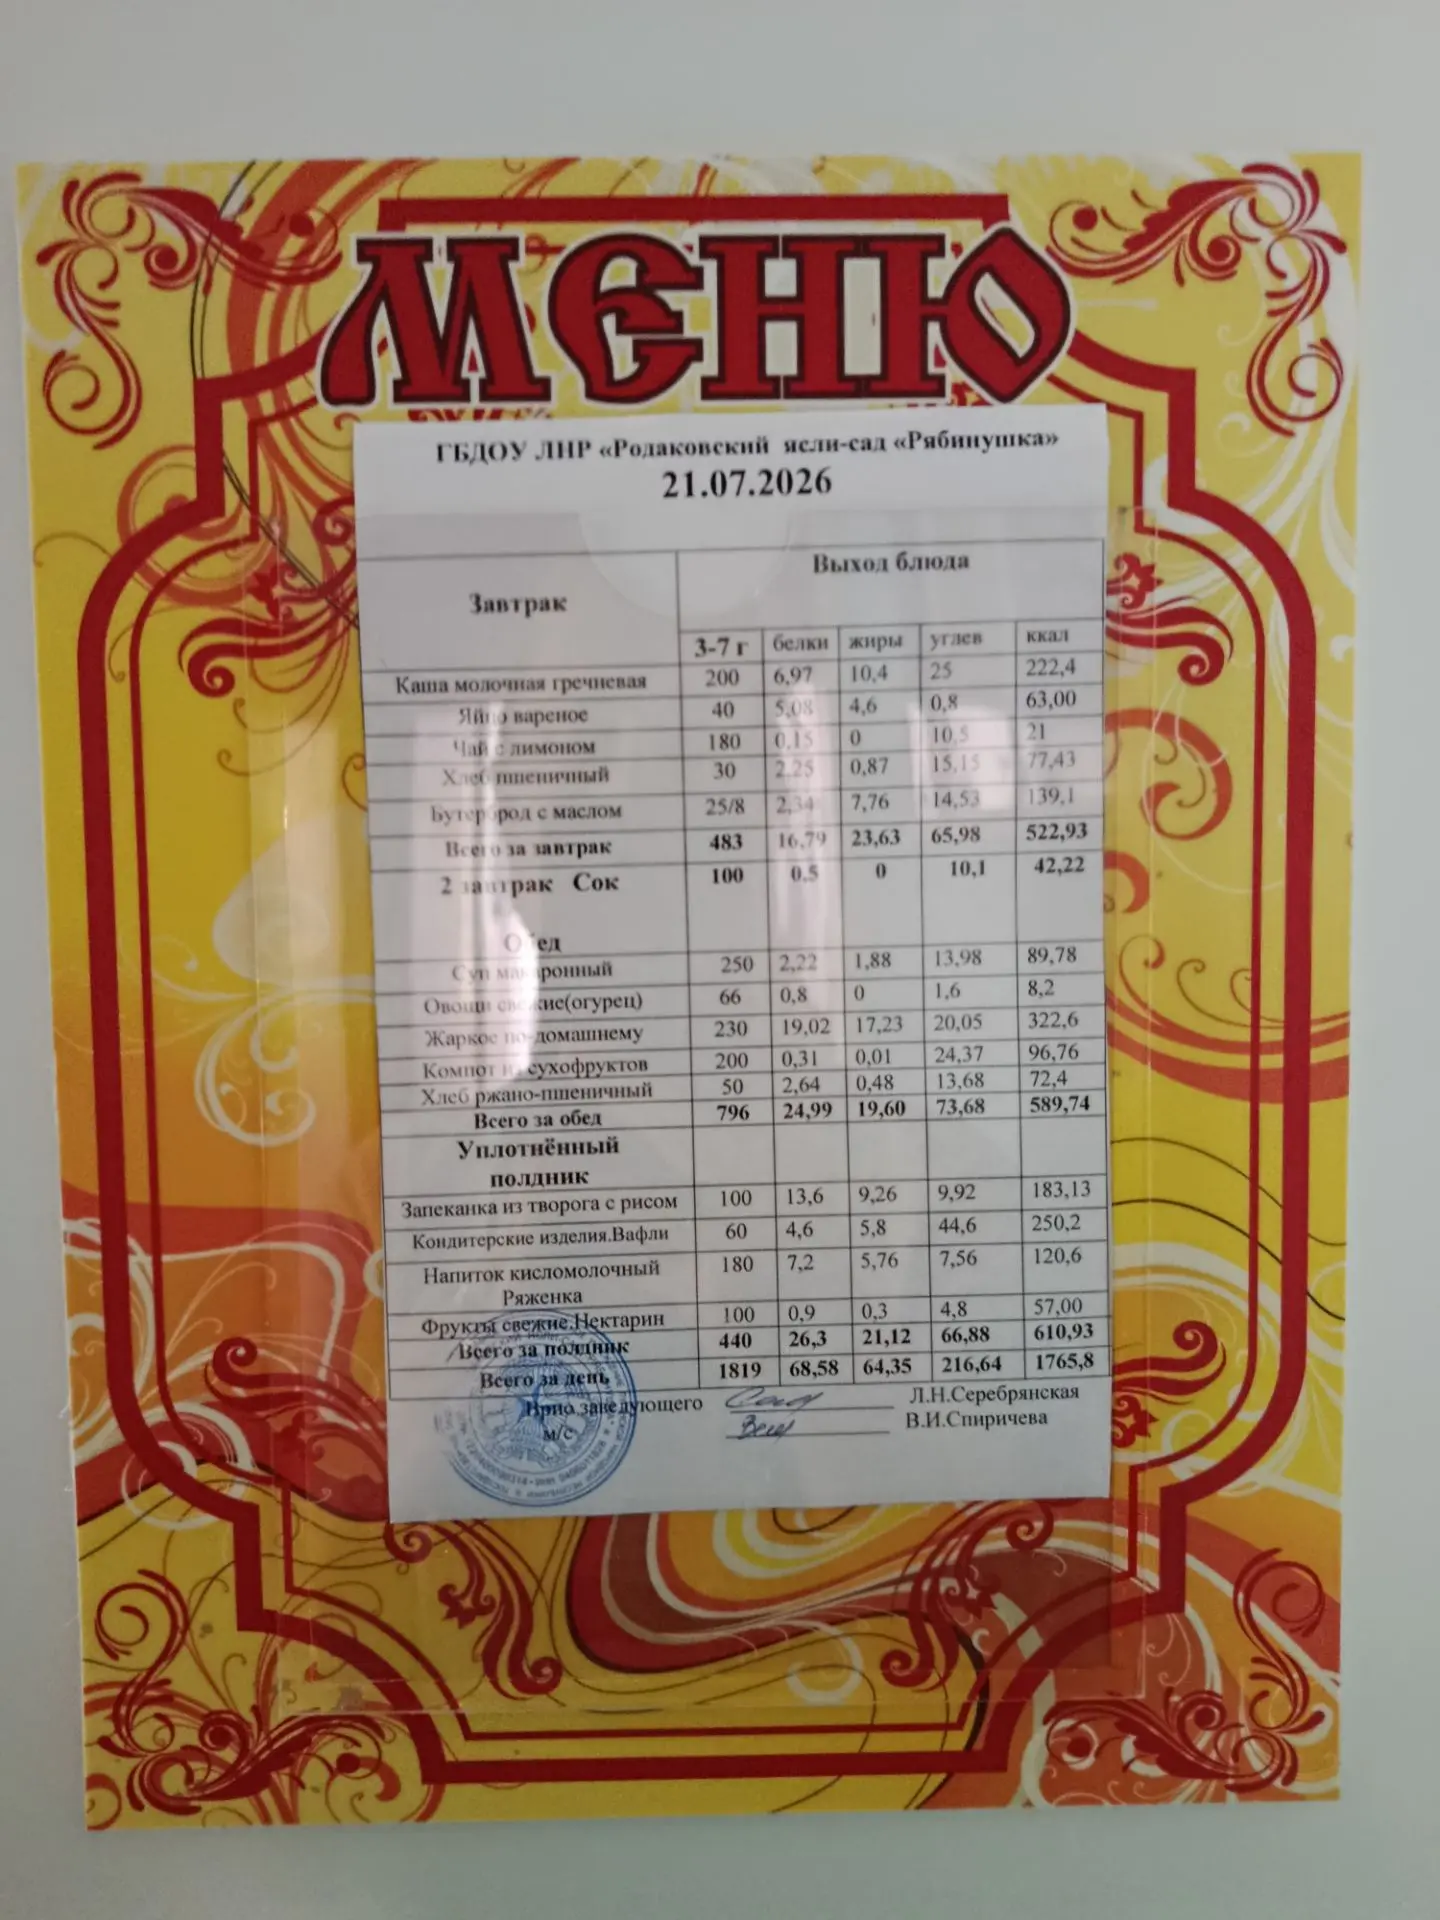 МЕНЮ
ГБДОУ ЛНР «Родаковский ясли-сад «Рябинушка»
21.07.2026
Завтрак Выход блюда
3-7 г белки жиры углев ккал
Каша молочная гречневая 200 6,97 10,4 25 222,4
Яйцо вареное 40 5,08 4,6 0,8 63,00
Чай с лимоном 180 0,15 0 10,5 21
Хлеб пшеничный 30 2,25 0,87 15,15 77,43
Бутерброд с маслом 25/8 2,34 7,76 14,53 139,1
Всего за завтрак 483 16,79 23,63 65,98 522,93
2 завтрак Сок 100 0,5 0 10,1 42,22
Обед
Суп макаронный 250 2,22 1,88 13,98 89,78
Овощи свежие(огурец) 66 0,8 0 1,6 8,2
Жаркое по-домашнему 230 19,02 17,23 20,05 322,6
Компот из сухофруктов 200 0,31 0,01 24,37 96,76
Хлеб ржано-пшеничный 50 2,64 0,48 13,68 72,4
Всего за обед 796 24,99 19,60 73,68 589,74
Уплотнённый
полдник
Запеканка из творога с рисом 100 13,6 9,26 9,92 183,13
Кондитерские изделия.Вафли 60 4,6 5,8 44,6 250,2
Напиток кисломолочный 180 7,2 5,76 7,56 120,6
Ряженка
Фрукты свежие.Нектарин 100 0,9 0,3 4,8 57,00
Всего за полдник 440 26,3 21,12 66,88 610,93
Всего за день 1819 68,58 64,35 216,64 1765,8
Врио.заведующего Л.Н.Серебрянская
м/с В.И.Спиричева